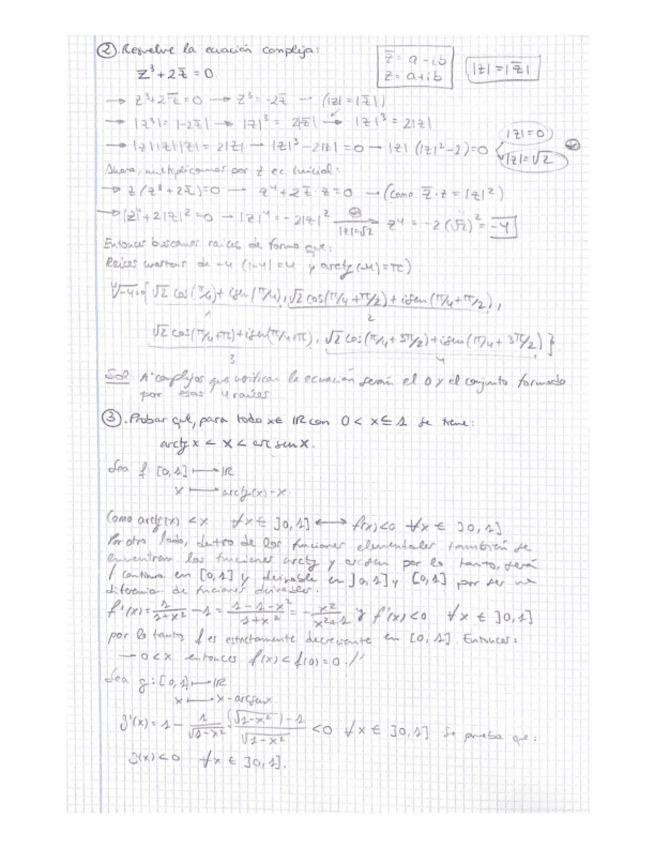 ② Resuelve la ecuación compleja:
z³ + 2z̄ = 0.
z̄ = a - ib
z = a + ib
|z| = |z̄|
→ z³ + 2z̄ = 0 → z³ = -2z̄ → (|z| = |z̄|)
→ |z³| = |-2z̄| → |z|³ = 2|z̄| → |z|³ = 2|z|
→ |z||z||z| = 2|z| → |z|³ - 2|z| = 0 → |z| (|z|² - 2) = 0
|z| = 0
|z| = √2
Ahora, multiplicamos por z ec inicial:
→ z (z³ + 2z̄) = 0 → z⁴ + 2z̄·z = 0 → (como z̄·z = |z|²)
→ |z|⁴ + 2|z|² = 0 → |z|⁴ = -2|z|² |z|=√2 z⁴ = -2(√2)² = -4
Entonces buscamos raíces de forma que:
Raíces cuartas de -4 (|-4| = 4 y arctg(-4) = π)
⁴√-4 = { √2 cos(π/4) + i sen(π/4), √2 cos(π/4 + π/2) + i sen(π/4 + π/2),
2
√2 cos(π/4 + π) + i sen(π/4 + π), √2 cos(π/4 + 3π/2) + i sen(π/4 + 3π/2) }
3 4
Sol complejos que verifican la ecuación serán el 0 y el conjunto formado
por esas 4 raíces
③ Probar que, para todo x ∈ ℝ con 0 < x ≤ 1 se tiene:
arctg x < x < arcsen x.
Sea f [0,1] → ℝ
x → arctg(x) - x
Como arctg(x) < x ∀x ∈ ]0,1] ↔ f(x) < 0 ∀x ∈ ]0,1]
Por otro lado, dentro de las funciones elementales también se
encuentran las funciones arctg y arcsen por lo tanto, será
f continua en [0,1] y derivable en ]0,1] y [0,1] por ser una
diferencia de funciones derivables.
f'(x) = 1/(1+x²) - 1 = (1-1-x²)/(1+x²) = - x²/(x²+1) y f'(x) < 0 ∀x ∈ ]0,1]
por lo tanto f es estrictamente decreciente en [0,1]. Entonces:
→ 0 < x entonces f(x) < f(0) = 0.//
Sea g: [0,1] → ℝ
x → x - arcsen x
g'(x) = 1 - 1/√(1-x²) (√(1-x²)) - 1 / √(1-x²) < 0 ∀x ∈ ]0,1] Se prueba que:
g(x) < 0 ∀x ∈ ]0,1].